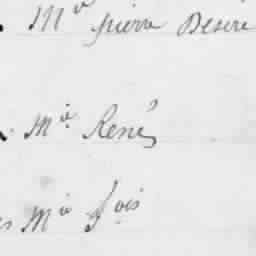 Mie pierre Desiré
Mie René
Mie fois